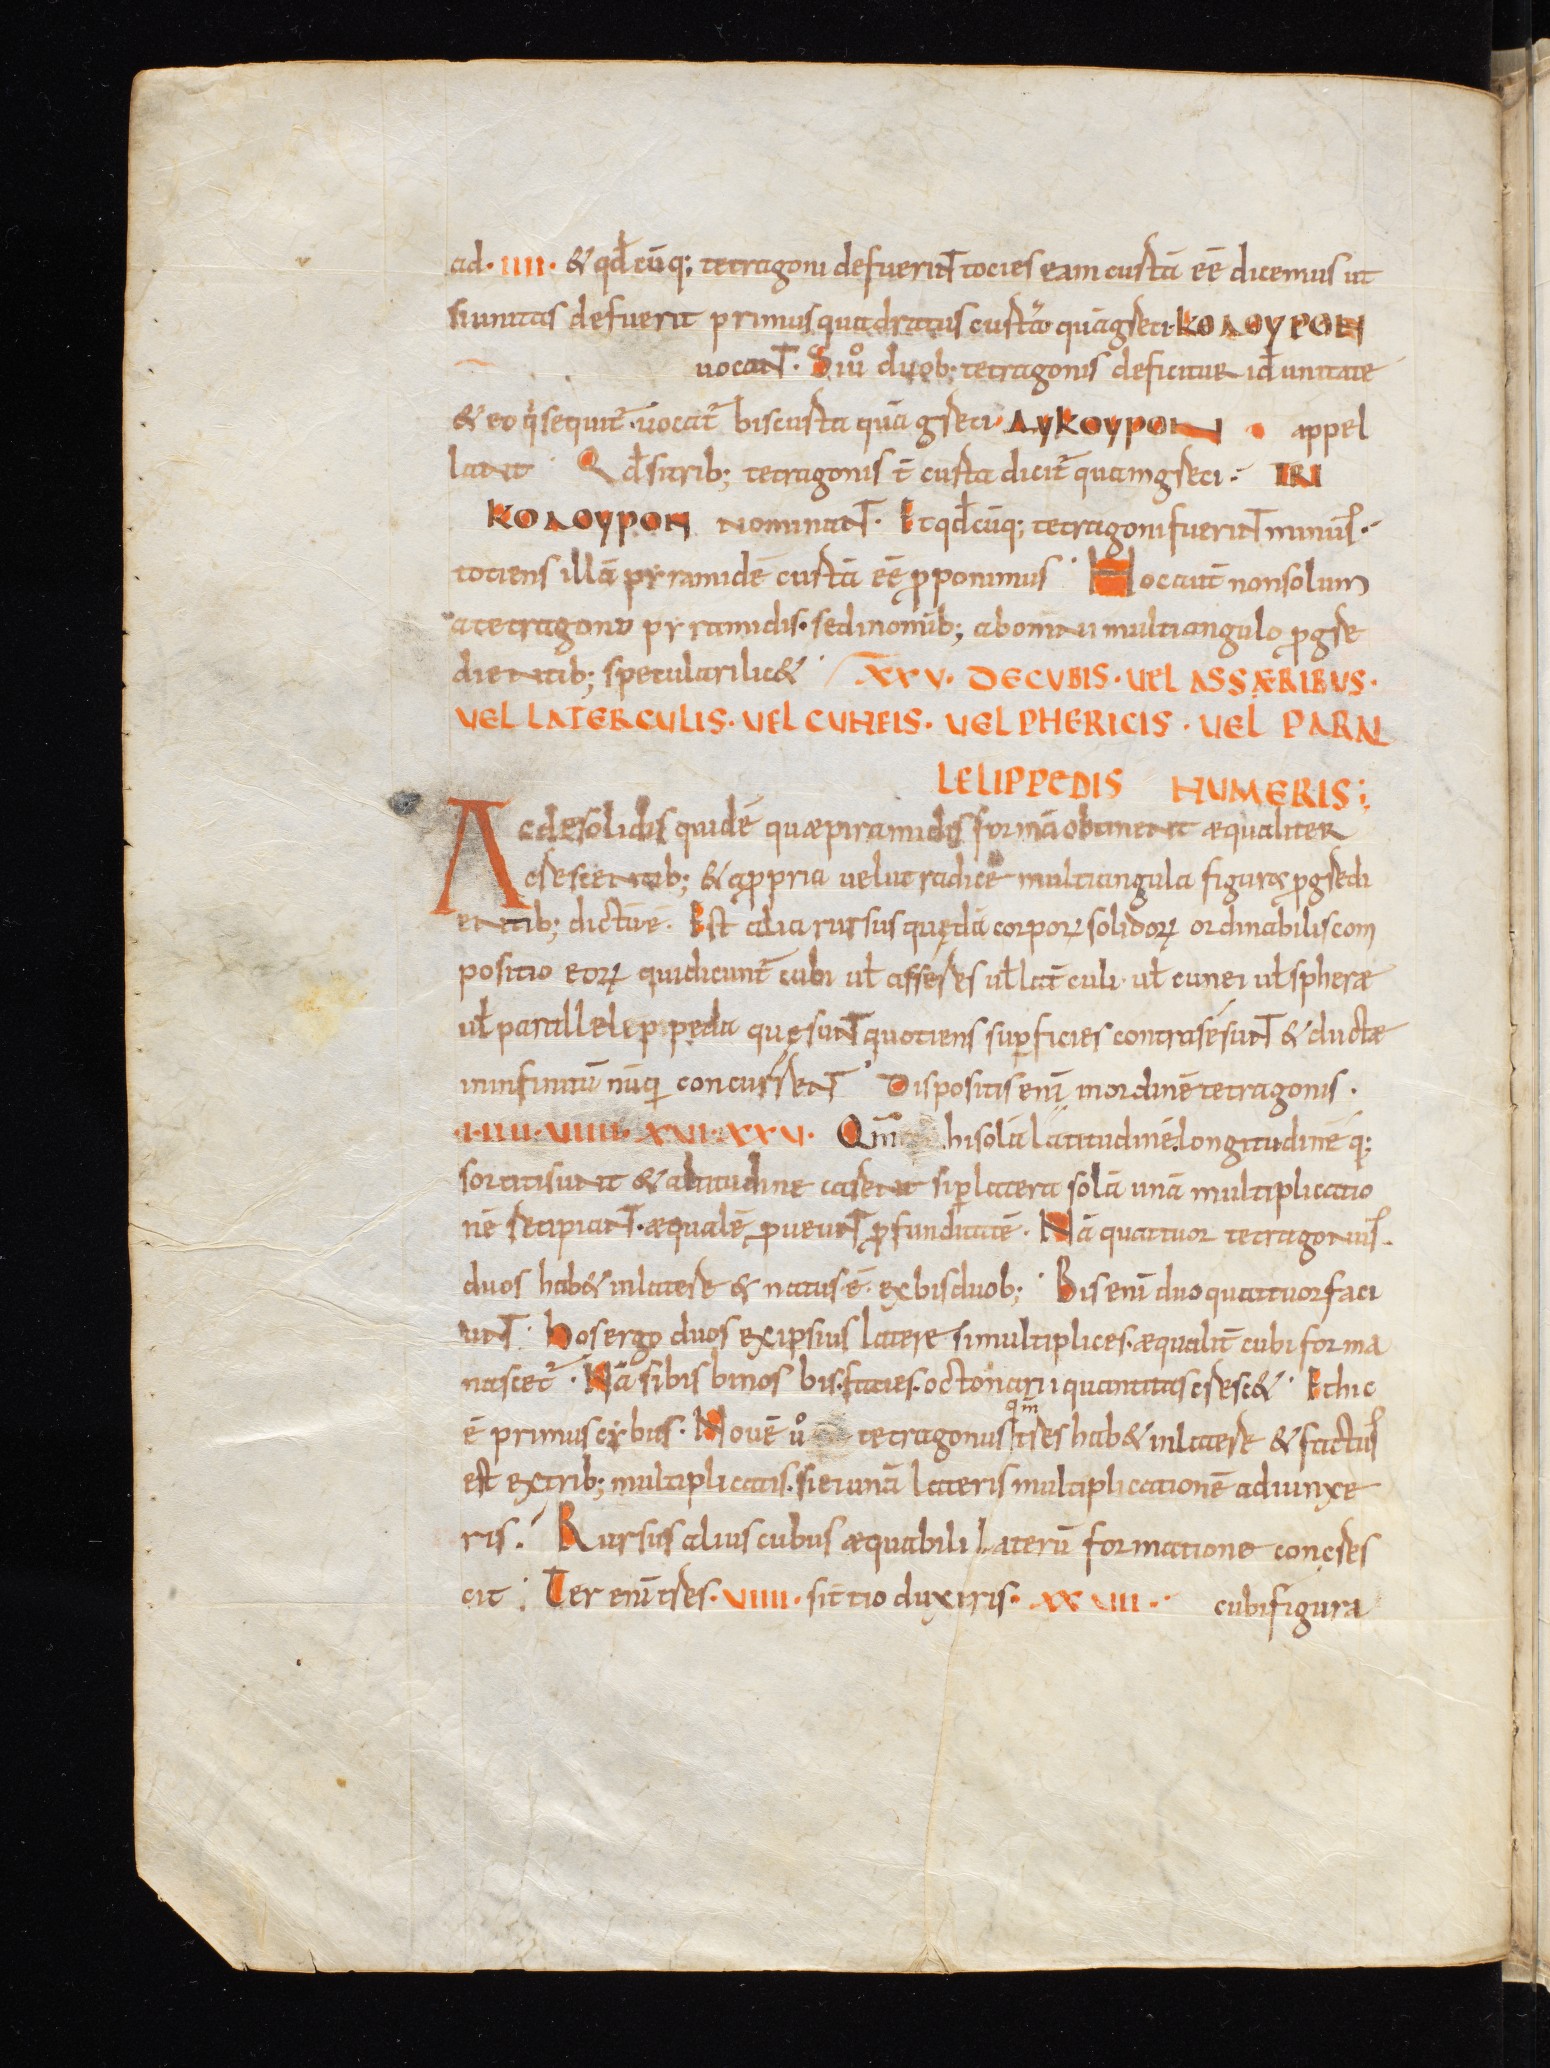 ad· IIII· & qđcūq; tetragoni defuerint tocies eam custā ēē dicemus ut
siunitas defuerit primus quadratus custa quāgreci· ΚΟΛΟΥΡΟΝ
uocant· Siuº duob; tetragonis deficitur idunitate
& eo q sequit̄· uocat̄ biscusta quā greci· ΔΥΚΟΥΡΟΝ · appel
lant· Qđsitrib; tetragonis t̄ custa dicit̄ quamgreci· TRI
ΚΟΛΟΥΡΟΝ nominant· Etqđcūq; tetragoni fuerint minus·
totiens illā pyramidē custā ēē proponimus· Hocaut̄ nonsolum
atetragono pyramidis· sedinomib; abomni multiangulo progre
dientib; specularilic&· XXV· DECUBIS· UEL ASSÆRIBUS·
UEL LATERCULIS· UEL CUNEIS· UEL PHERICIS· UEL PARAL
LELIPPEDIS NUMERIS;
Acdesolidis quidē quæpiramidis formā obtinent æqualiter
crescentib; & apropria uelut radice multiangula figuræ progredi
entib; dictūē· Est alia rursus quędā corporꝝ solidorꝝ ordinabilis com
positio eorꝝ quidicunt̄ cubi uł asseres uł lat̄culi· uł cunei uł spheræ
uł parallelep peda quęsunt quotiens sup̄ficies contrasēsunt & ductæ
ininfinitū nūq concurrent· Dispositis enī inordinē tetragonis·
·I·IIII·VIIII·XVI·XXV· Qm̄ hisolā latitudinē longitudinē q;
sortitisunt & altitudine carent sip̄latera solā unā multiplicatio
nē recipiant· æqualē proueunt profunditatē· Nā quattuor tetragonus
duos hab& inlatere & natus ē· exbisduob;· Bis enī duo quattuor faci
unt· Hosergo duos exipsius latere simultiplices· æqualit̄ cubiforma
nascet̄· Nā sibis binos bis· facies· octonarii quantitas cresc&· Ethic
ē primus cybus· Nouē uº tetragonus qm̄ tres hab& inlatere & factus
est extrib; multiplicatis· sieiunā lateris multiplicationē adiunxe
ris· Rursus alius cubus æquabili laterū formatione concres
cit· Ter enī tres· VIIII· sit̄tio duxiris· XXVII· cubifigura